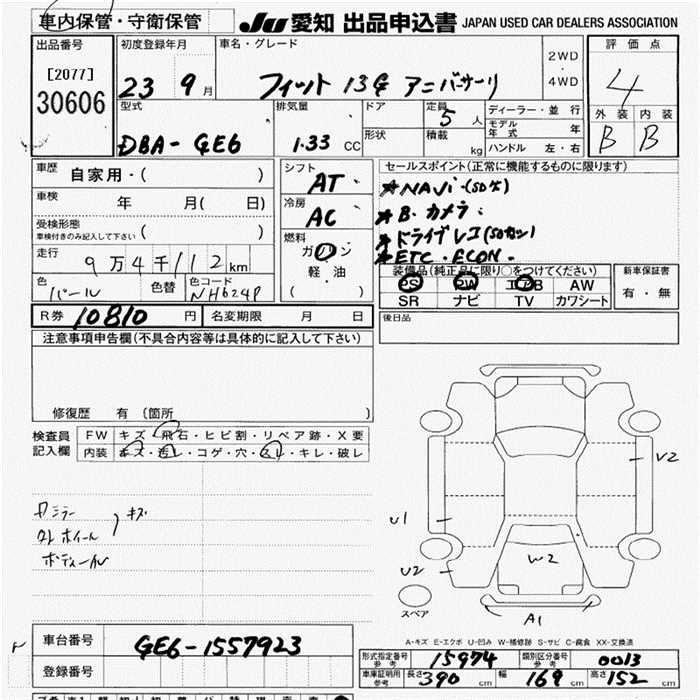 車内保管・守衛保管
JU 愛知 出品申込書 JAPAN USED CAR DEALERS ASSOCIATION
出品番号
[2077]
30606
初度登録年月 車名・グレード
23 9月 フィット 13G アニバーサリ
2WD
・
4WD
評価点
4
外装 内装
B B
型式 排気量 ドア 定員
DBA-GE6 1.33 CC
5人
形状 積載 kg
ディーラー・並行
モデル年式 年
ハンドル 左・右
車歴 自家用・( )
車検 年 月( 日)
受検形態
車検付きのみ記入して下さい ( )
走行 9万4千112km
色 パール 色替 色コード NH624P
シフト AT
冷房 AC
燃料
ガソリン
軽・油
( )
セールスポイント(正常に機能するものに限ります)
★NAVi・(SDナビ)
★B・カメラ
★ドライブレコ(50カン)
★ETC・ECON・
装備品(純正品に限り○をつけてください)
PS PW エアB AW
SR ナビ TV カワシート
新車保証書
有・無
R券 10810円 名変期限 月 日
後日品
注意事項申告欄(不具合内容等は具体的に記入して下さい)
修復歴 有(箇所 )
検査員
記入欄
FW キズ・飛石・ヒビ割・リペア跡・X要
内装 キズ・汚レ・コゲ・穴・スレ・キレ・破レ
キズ
ホイール
V2
U1
U2
W2
A1
スペア
A-キズ E-エクボ U-凹み W-補修跡 S-サビ C-腐食 XX-交換済
車台番号 GE6-1557923
登録番号
形式指定番号 参考 15974 類別区分番号 参考 0013
車庫証明用 参考 長さ390 幅169 高さ152